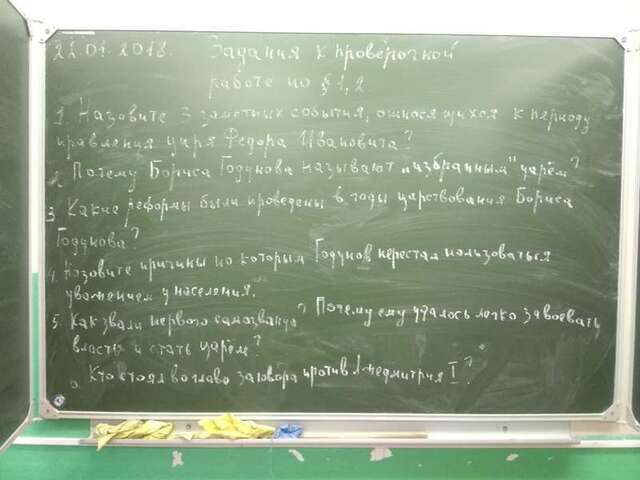 22.01.2018. Задания к проверочной
работе по § 1, 2
1. Назовите 3 заметных события, относящихся к периоду
правления царя Федора Ивановича?
2. Почему Бориса Годунова называют „избранным" царём?
3. Какие реформы были проведены в годы царствования Бориса
Годунова?
4. Назовите причины по которым Годунов перестал пользоваться
уважением у населения.
5. Как звали первого самозванца? Почему ему удалось легко завоевать
власть и стать царём?
6. Кто стоял во главе заговора против Лжедмитрия I?